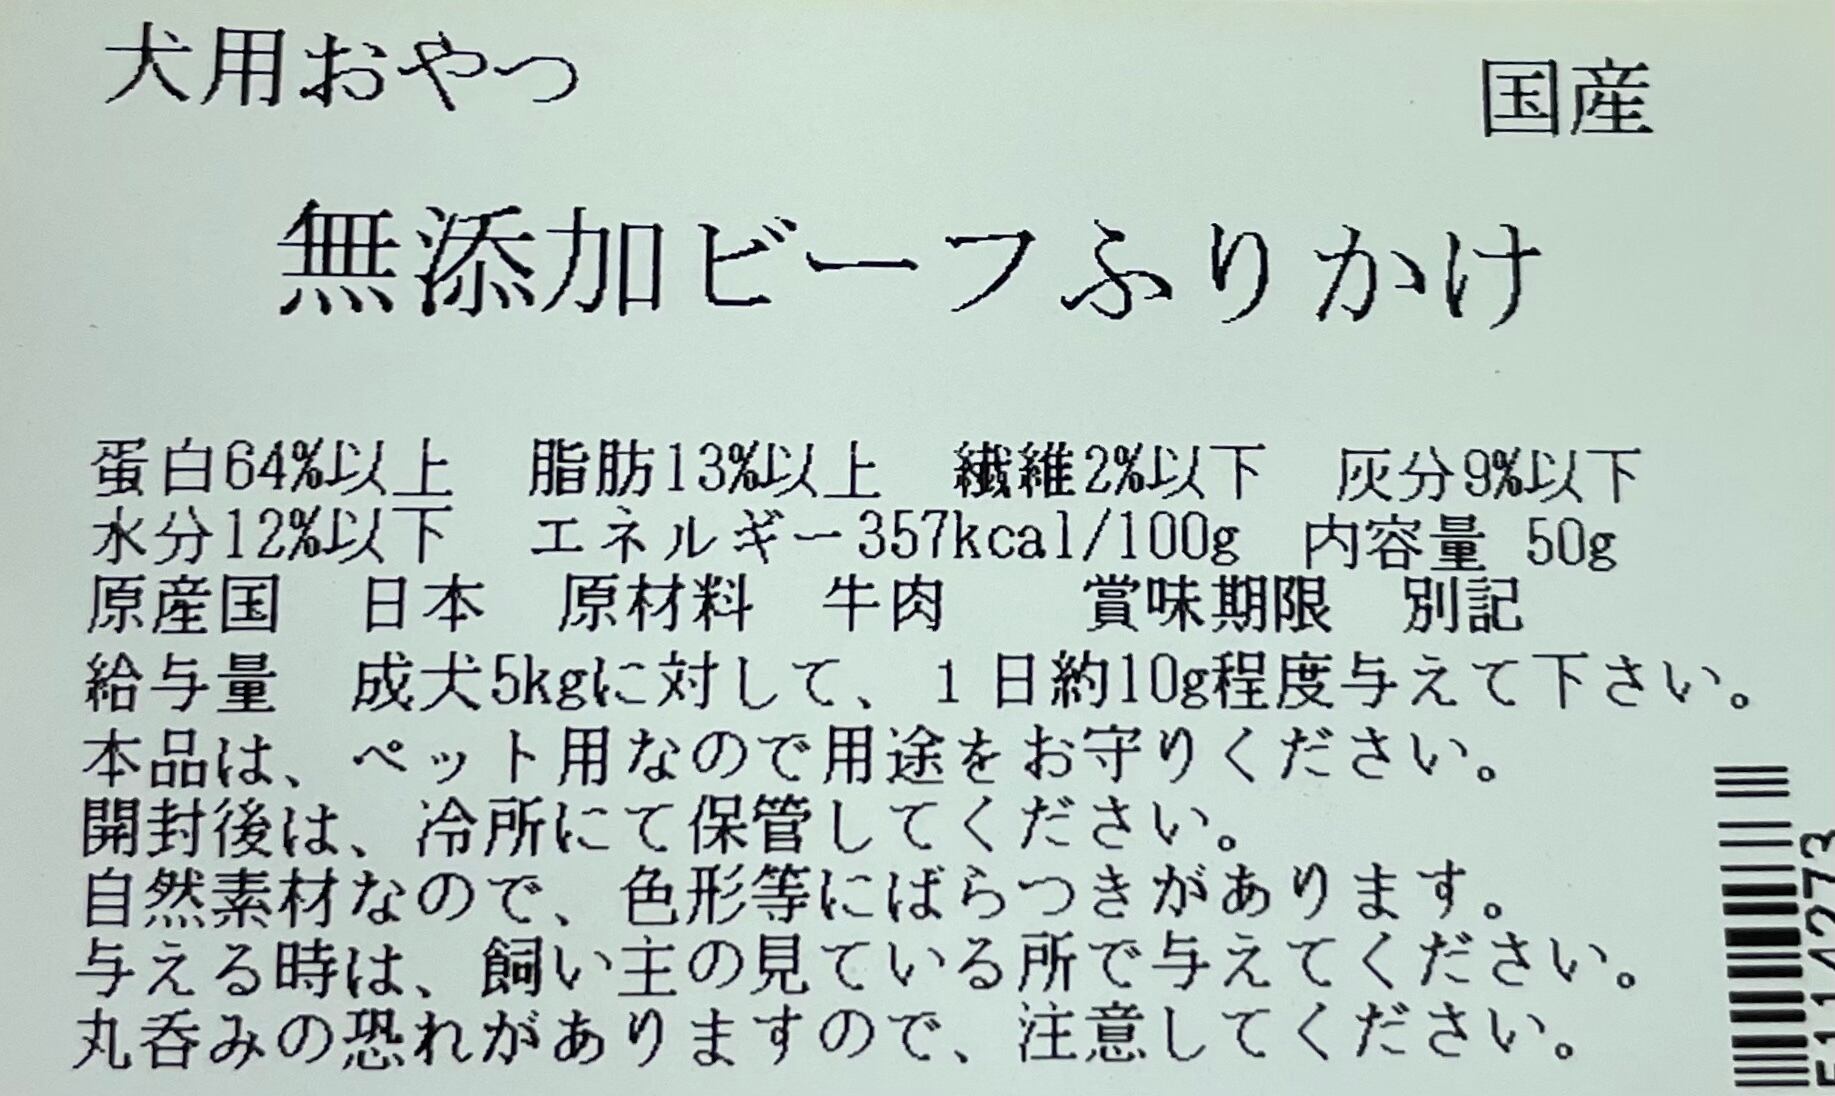 犬用おやつ 国産
無添加ビーフふりかけ
蛋白64%以上 脂肪13%以上 繊維2%以下 灰分9%以下
水分12%以下 エネルギー357kcal/100g 内容量 50g
原産国 日本 原材料 牛肉 賞味期限 別記
給与量 成犬5kgに対して、1日約10g程度与えて下さい。
本品は、ペット用なので用途をお守りください。
開封後は、冷所にて保管してください。
自然素材なので、色形等にばらつきがあります。
与える時は、飼い主の見ている所で与えてください。
丸呑みの恐れがありますので、注意してください。
5114273